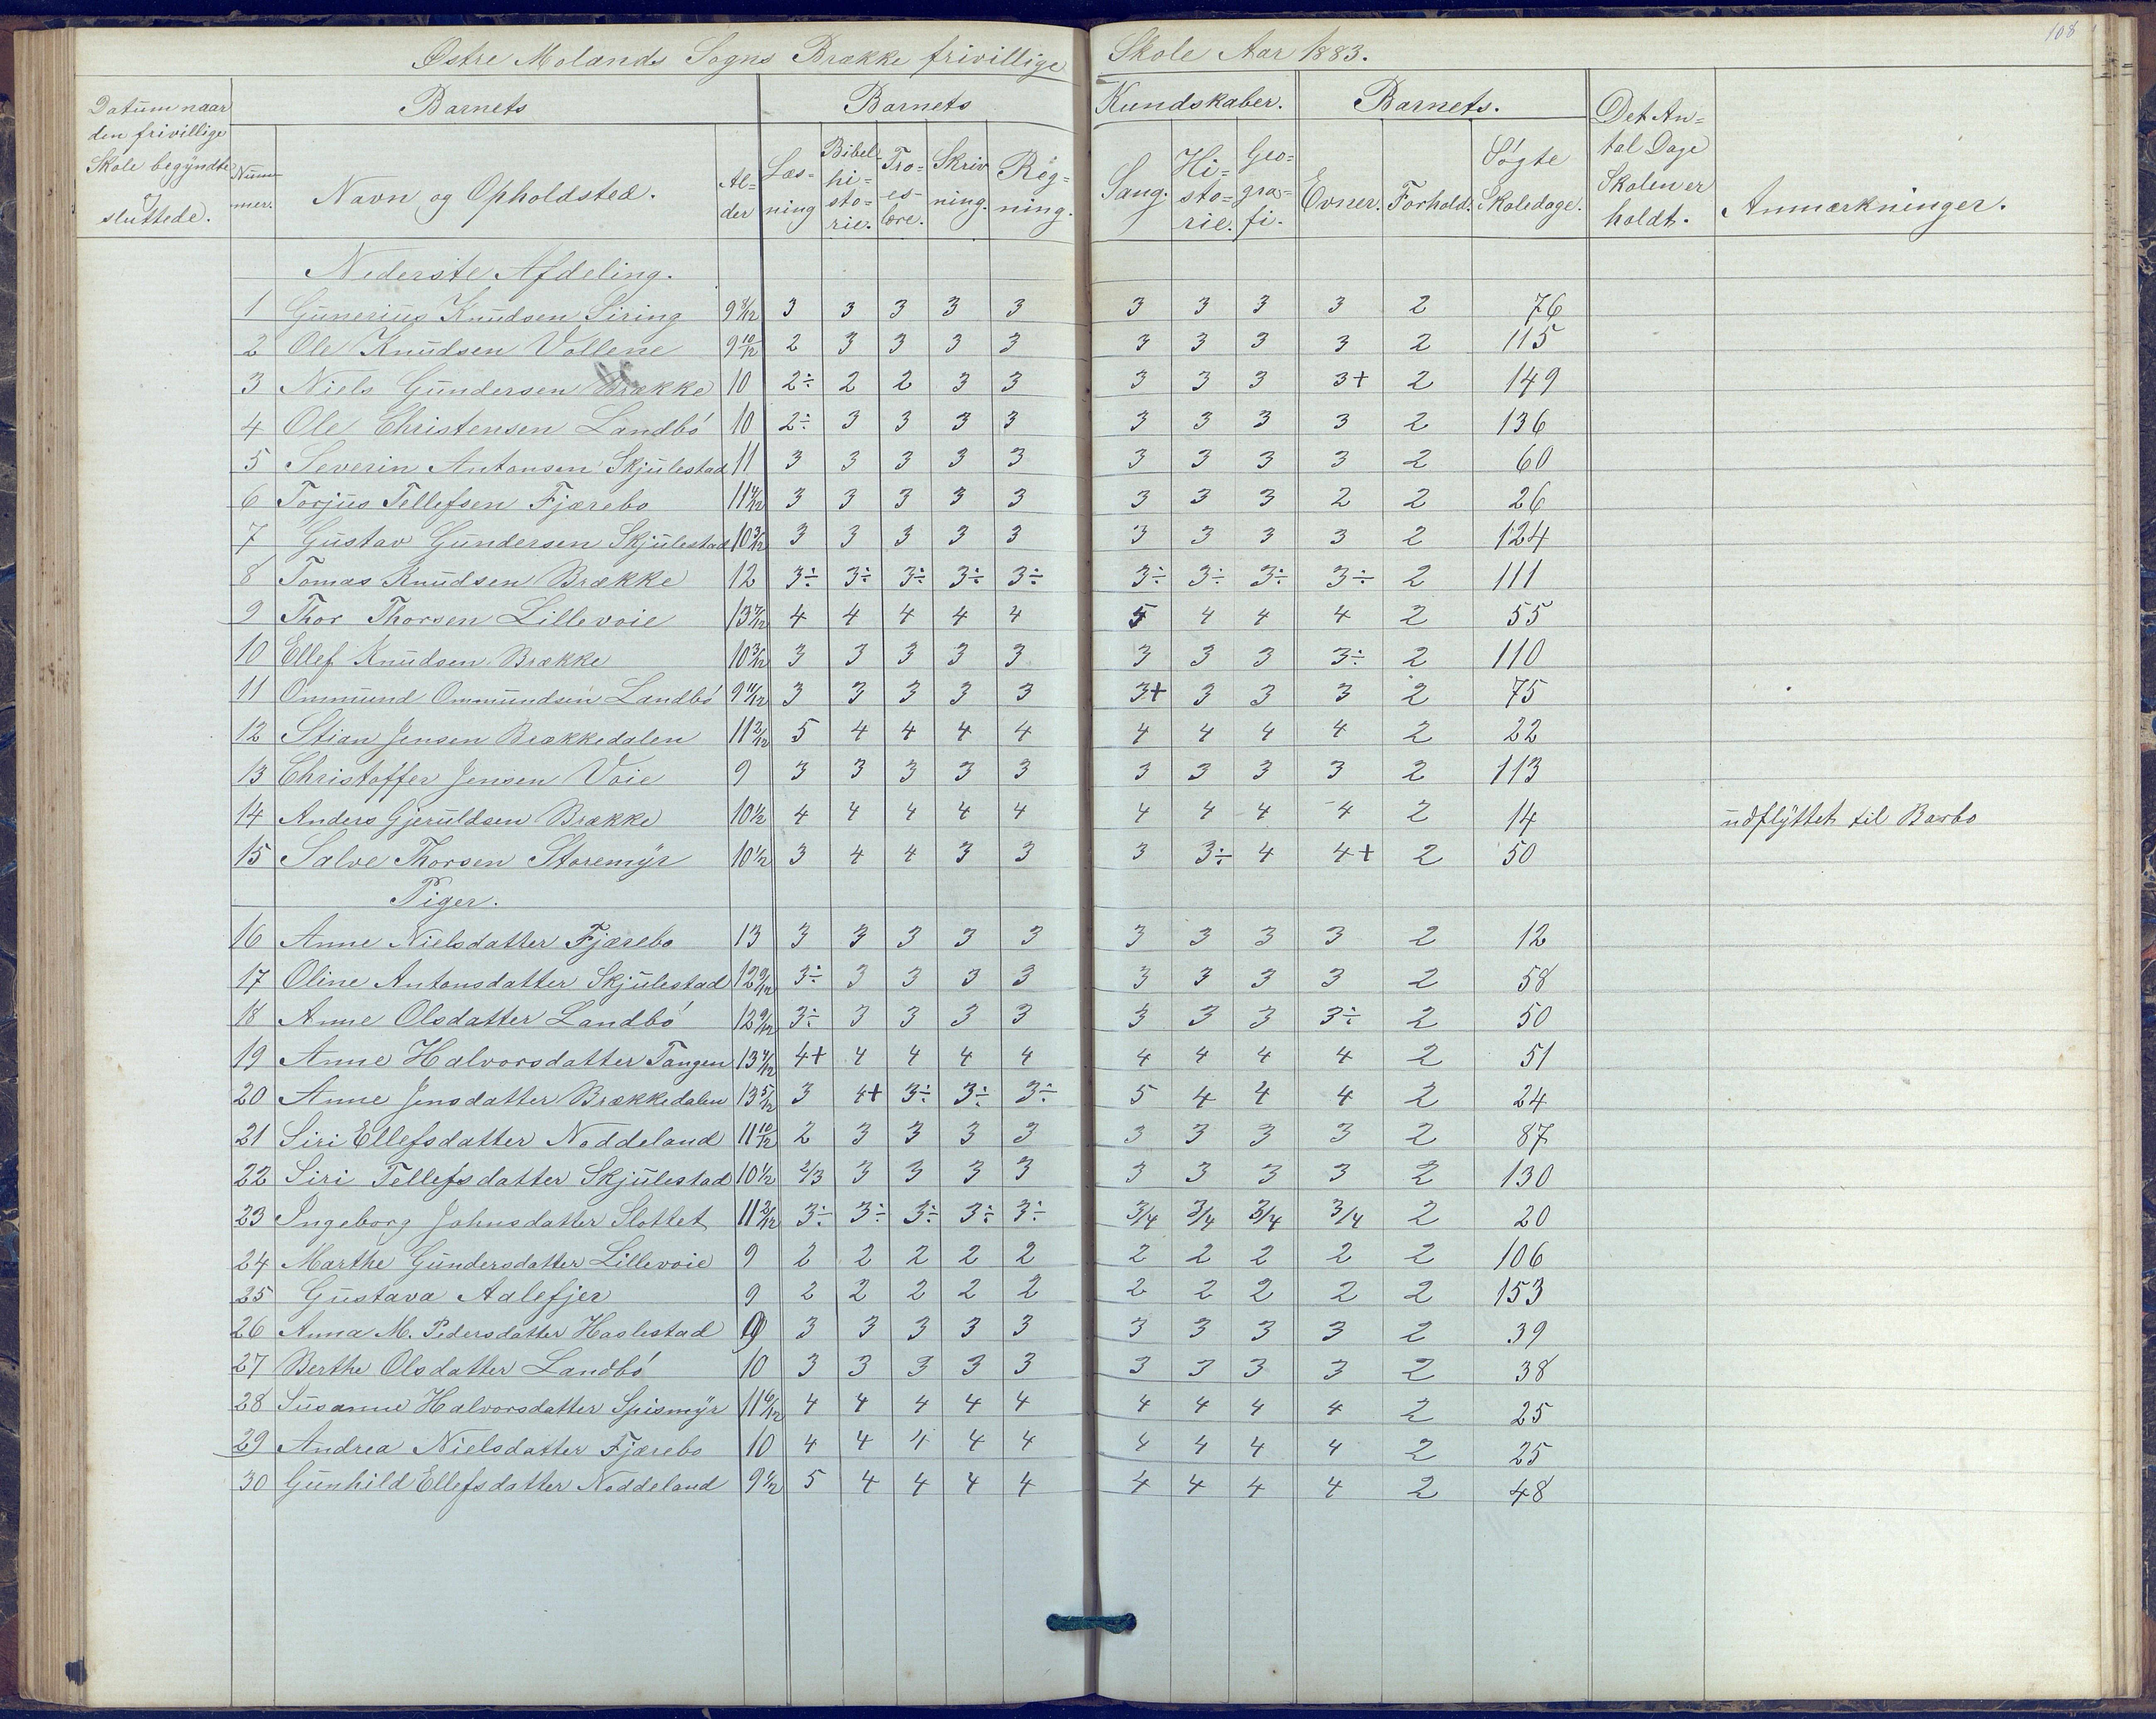 108
Østre Molands Sogns Brække frivillige Skole Aar 1883.
Datum naar den frivillige Skole begyndte og sluttede.
Barnets
Barnets Kundskaber.
Barnets.
Det An=tal Dage Skolen er holdt.
Anmærkninger.
Num=mer. Navn og Opholdsted. Al=der Læs=ning Bibel=hi=sto=rie. Tro=es=lære. Skriv ning. Reg=ning. Sang. Hi=sto=rie. Geo=gra=fi. Evner. Forhold. Søgte Skoledage.
Nederste Afdeling.
1 Gunerius Knudsen Siring 9 8/12 3 3 3 3 3 3 3 3 3 2 76
2 Ole Knudsen Vollene 9 10/12 2 3 3 3 3 3 3 3 3 2 115
3 Niels Gundersen Brække 10 2÷ 2 2 3 3 3 3 3 3+ 2 149
4 Ole Christensen Landbö 10 2÷ 3 3 3 3 3 3 3 3 2 136
5 Severin Antonsen Skjulestad 11 3 3 3 3 3 3 3 3 3 2 60
6 Torjus Tellefsen Fjærebo 11 3 3 3 3 3 3 3 3 2 2 26
7 Gustav Gundersen Skjulestad 10 3/12 3 3 3 3 3 3 3 3 3 2 124
8 Tomas Knudsen Brække 12 3÷ 3÷ 3÷ 3÷ 3÷ 3÷ 3÷ 3÷ 3÷ 2 111
9 Thor Thorsen Lillevoie 13 4 4 4 4 4 5 4 4 4 2 55
10 Ellef Knudsen Brække 10 3/12 3 3 3 3 3 3 3 3 3÷ 2 110
11 Ommund Ommundsen Landbö 9 11/12 3 3 3 3 3 3+ 3 3 3 2 75
12 Stian Jensen Brækkedalen 11 2/12 5 4 4 4 4 4 4 4 4 2 22
13 Christoffer Jensen Voie 9 3 3 3 3 3 3 3 3 3 2 113
14 Anders Gjeruldsen Brække 10 1/2 4 4 4 4 4 4 4 4 4 2 14 udflyttet til Barbo
15 Salve Thorsen Storemyr 10 1/2 3 4 4 3 3 3 3÷ 4 4+ 2 50
Piger.
16 Anne Nielsdatter Fjærebo 13 3 3 3 3 3 3 3 3 3 2 12
17 Oline Antonsdatter Skjulestad 12 9/12 3÷ 3 3 3 3 3 3 3 3 2 58
18 Anne Olsdatter Landbö 12 9/12 3÷ 3 3 3 3 3 3 3 3÷ 2 50
19 Anne Halvorsdatter Tangen 13 4+ 4 4 4 4 4 4 4 4 2 51
20 Anne Jensdatter Brækkedalen 13 5/12 3 4+ 3÷ 3÷ 3÷ 5 4 4 4 2 24
21 Siri Ellefsdatter Noddeland 11 10/12 2 3 3 3 3 3 3 3 3 2 87
22 Siri Tellefsdatter Skjulestad 10 1/2 2/3 3 3 3 3 3 3 3 3 2 130
23 Ingeborg Johnsdatter Slottet 11 2/12 3÷ 3÷ 3÷ 3÷ 3÷ 3/4 3/4 3/4 3/4 2 20
24 Marthe Gundersdatter Lillevoie 9 2 2 2 2 2 2 2 2 2 2 106
25 Gustava Aalefjer 9 2 2 2 2 2 2 2 2 2 2 153
26 Anna M. Pedersdatter Haslestad 9 3 3 3 3 3 3 3 3 3 2 39
27 Berthe Olsdatter Landbö 10 3 3 3 3 3 3 3 3 3 2 38
28 Susanne Halvorsdatter Spismyr 11 4 4 4 4 4 4 4 4 4 2 25
29 Andrea Nielsdatter Fjærebo 10 4 4 4 4 4 4 4 4 4 2 25
30 Gunhild Ellefsdatter Noddeland 9 1/2 5 4 4 4 4 4 4 4 4 2 48